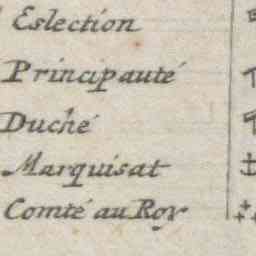 Eslection
Principauté
Duché
Marquisat
Comté au Roy